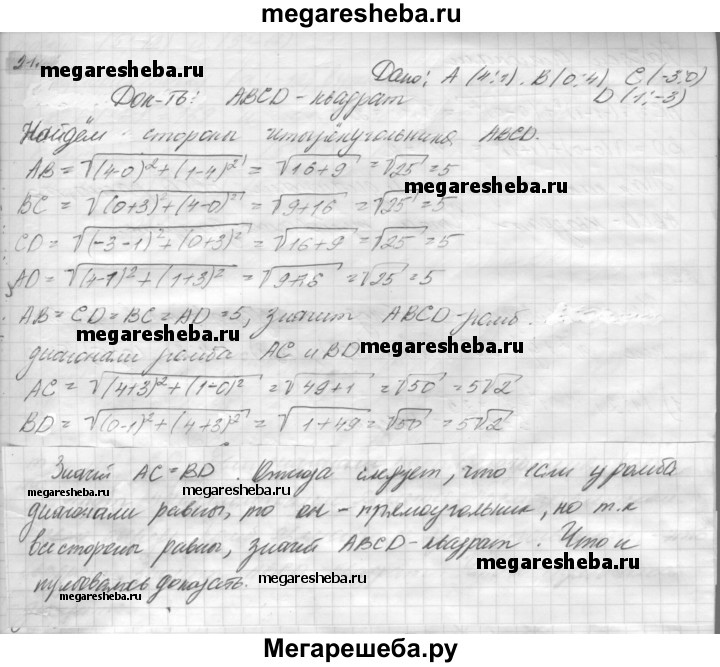 megaresheba.ru
21.
megaresheba.ru
Дано: A (4;1), B(0;4) C(-3;0)
D (1;-3)
Док-ть: ABCD - квадрат
Найдём стороны четырёхугольника ABCD.
AB = √(4-0)²+(1-4)² = √16+9 = √25 = 5
megaresheba.ru
BC = √(0+3)²+(4-0)² = √9+16 = √25 = 5
megaresheba.ru
CD = √(-3-1)²+(0+3)² = √16+9 = √25 = 5
AD = √(4-1)²+(1+3)² = √9+16 = √25 = 5
megaresheba.ru
AB = CD = BC = AD = 5, значит ABCD - ромб.
megaresheba.ru
диагонали ромба AC и BD
megaresheba.ru
AC = √(4+3)²+(1-0)² = √49+1 = √50 = 5√2
BD = √(0-1)²+(4+3)² = √1+49 = √50 = 5√2
Значит AC = BD. Отсюда следует, что если у ромба
megaresheba.ru
megaresheba.ru
диагонали равны, то он - прямоугольник, но т.к
megaresheba.ru
все стороны равны, значит ABCD - квадрат. Что и
megaresheba.ru
требовалось доказать.
megaresheba.ru
megaresheba.ru
Мегарешеба.ру